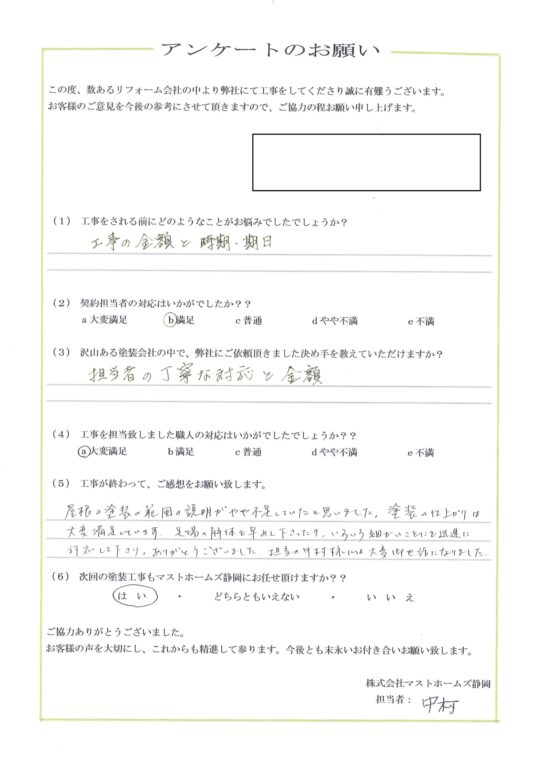 アンケートのお願い
この度、数あるリフォーム会社の中より弊社にて工事をしてくださり誠に有難うございます。
お客様のご意見を今後の参考にさせて頂きますので、ご協力の程お願い申し上げます。
（1） 工事をされる前にどのようなことがお悩みでしたでしょうか？
工事の金額と時期・期日
（2） 契約担当者の対応はいかがでしたか？？
a 大変満足 b 満足 c 普通 d やや不満 e 不満
（3） 沢山ある塗装会社の中で、弊社にご依頼頂きました決め手を教えていただけますか？
担当者の丁寧な対応と金額
（4） 工事を担当致しました職人の対応はいかがでしたでしょうか？
a 大変満足 b 満足 c 普通 d やや不満 e 不満
（5） 工事が終わって、ご感想をお願い致します。
屋根の塗装の範囲の説明がやや不足していたと思いました。塗装の仕上がりは
大変満足しています。足場の解体を早めて下さったり、いろいろ細かいことにも迅速に
対応して下さり、ありがとうございました。担当の中村様には大変御世話になりました。
（6） 次回の塗装工事もマストホームズ静岡にお任せ頂けますか？？
は い ・ どちらともいえない ・ い い え
ご協力ありがとうございました。
お客様の声を大切にし、これからも精進して参ります。今後とも末永いお付き合いお願い致します。
株式会社マストホームズ静岡
担当者： 中村